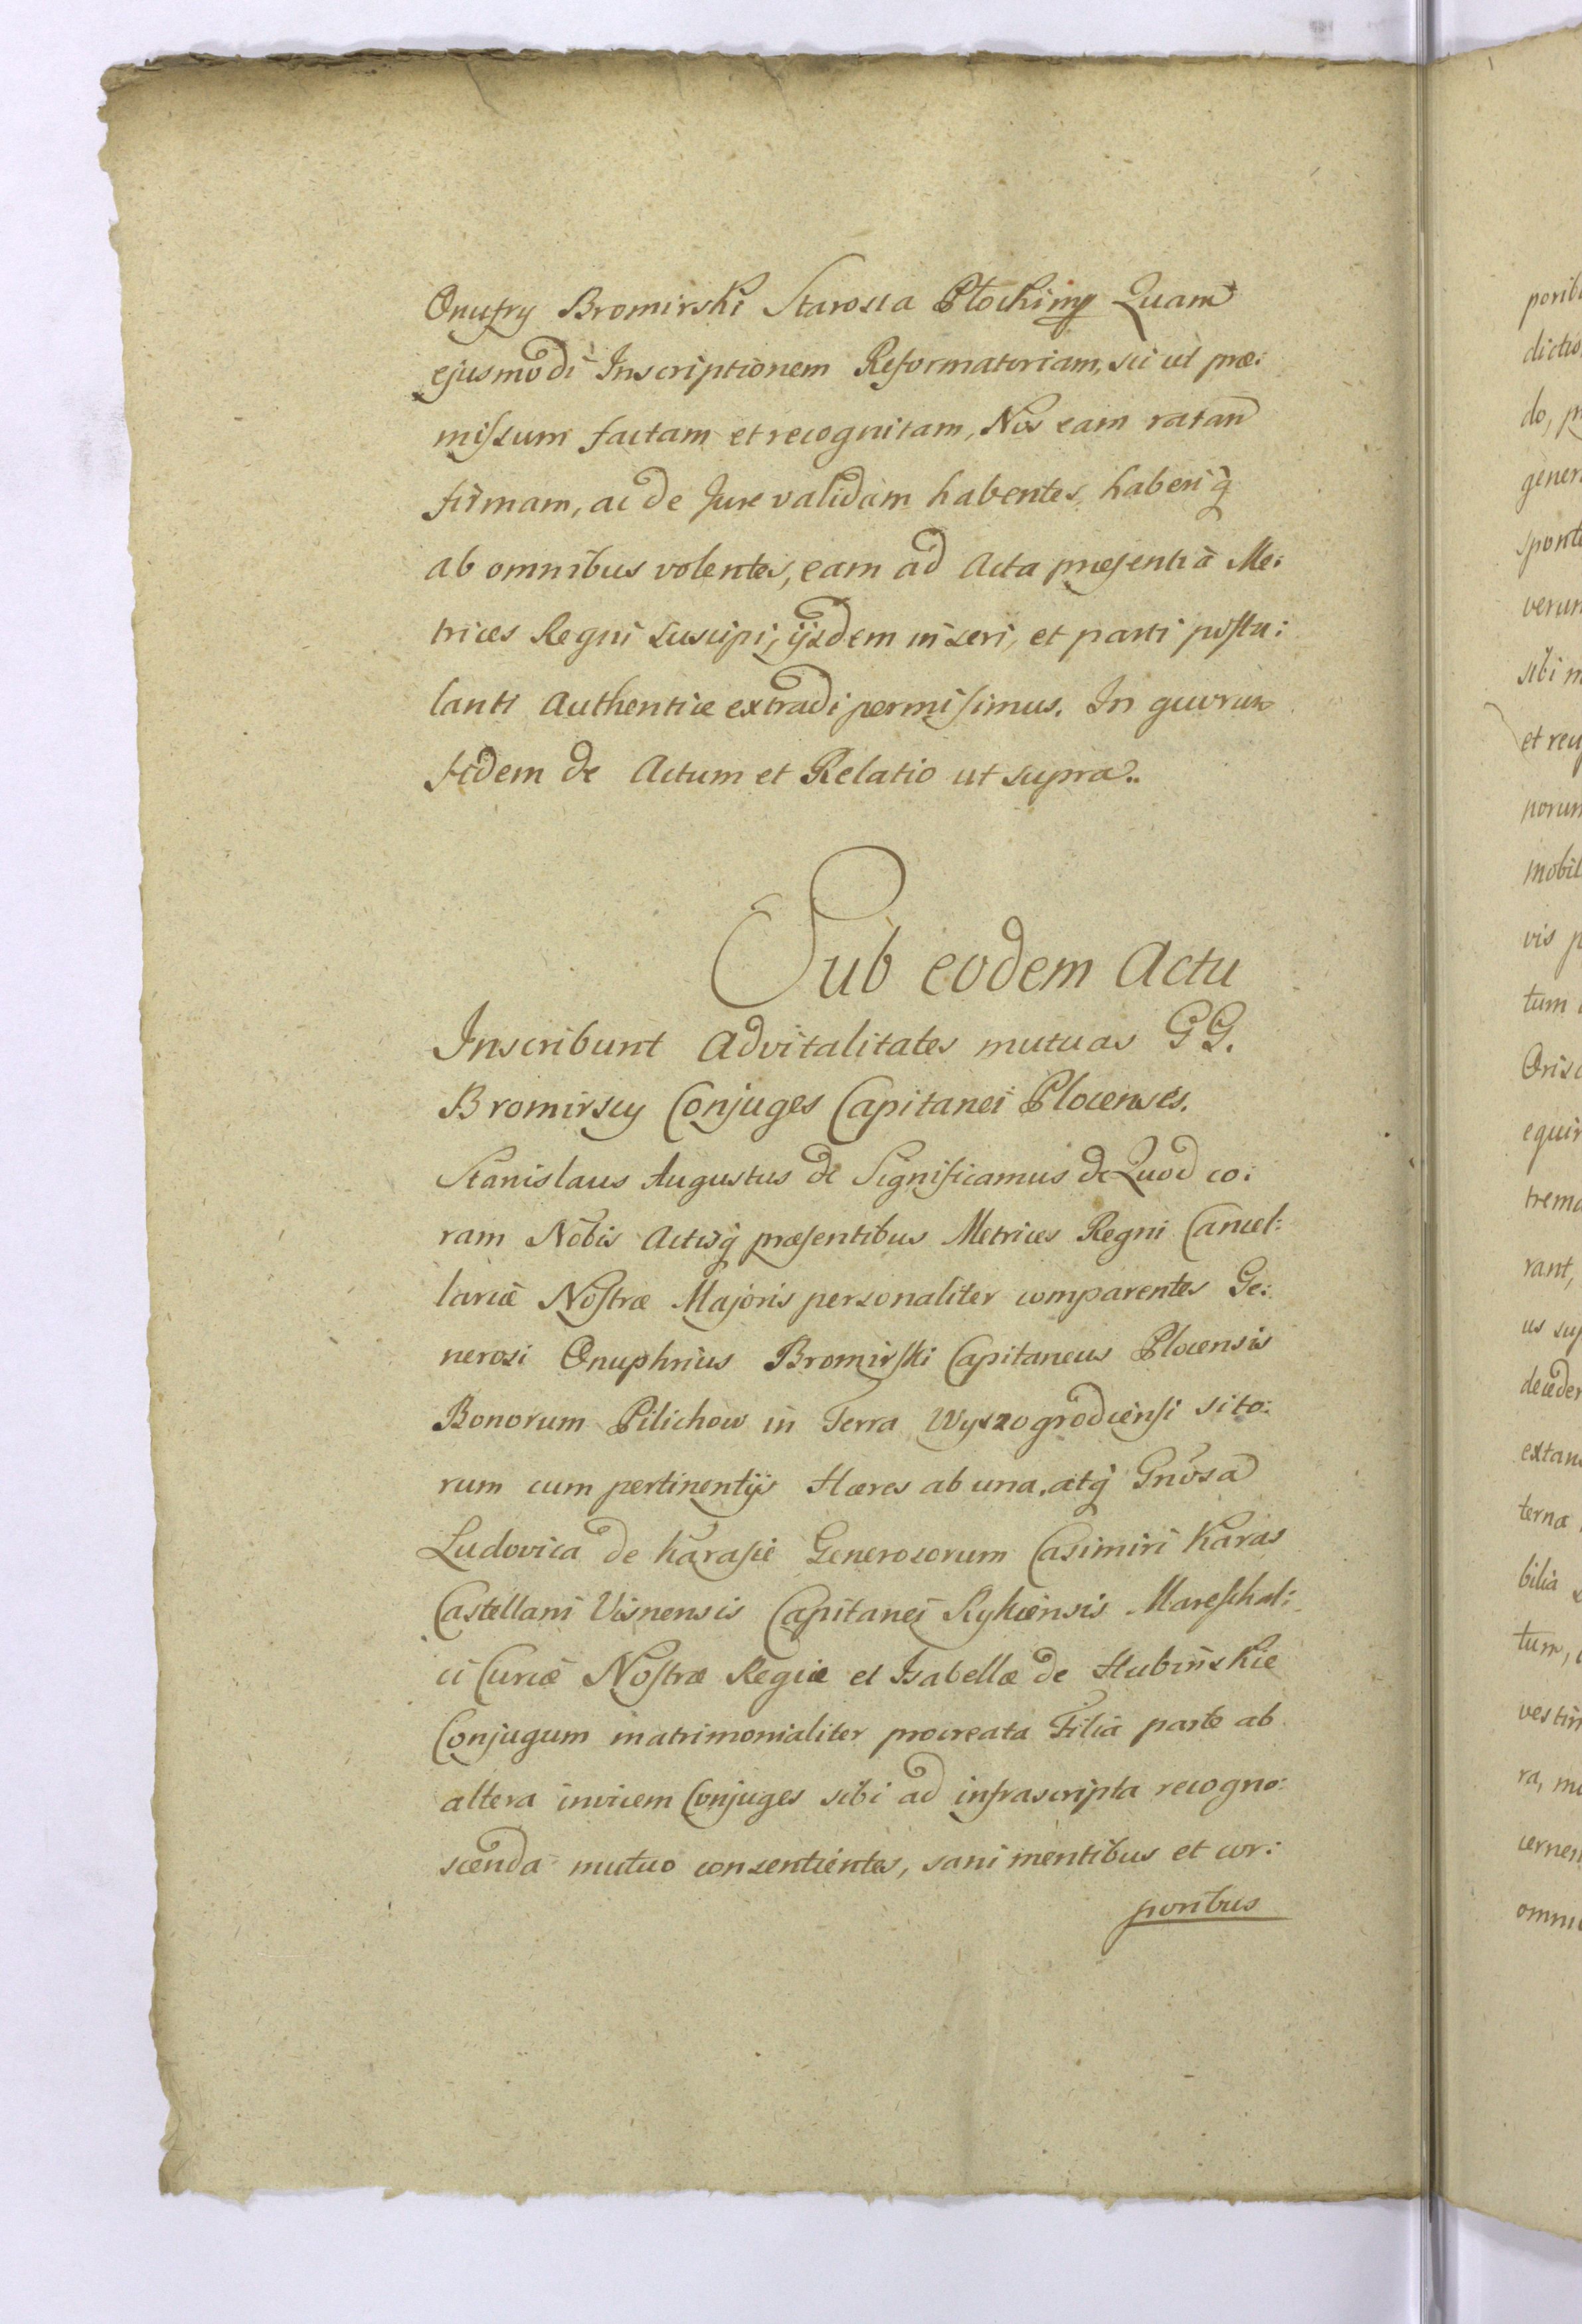 Onufry Bromirski Starosta Płocki mp Quam
ejusmodi Inscriptionem Reformatoriam, sic ut præ:
missum factam et recognitam, Nos eam ratam
firmam, ac de Jure validam habentes, haberiq̃
ab omnibus volentes, eam ad Acta præsentia Me:
trices Regni suscipi, ijsdem inseri, et parti postu:
lanti Authentice extradi permisimus. In quorum
fidem &c Actum et Relatio ut supra..
Sub eodem Actu
Inscribunt Advitalitates mutuas GG.
Bromirscy Conjuges Capitanei Plocenses.
Stanislaus Augustus &c Significamus &c Quod co:
ram Nobis Actisq̃ præsentibus Metrices Regni Cancel:
lariæ Nostræ Majoris personaliter comparentes Ge:
nerosi Onuphrius Bromirski Capitaneus Plocensis
Bonorum Pilichow in Terra Wyszogrodiensi sito:
rum cum pertinentijs Hæres ab una, atq̃ Gnosa
Ludovica de Karasie Generosorum Casimiri Karas
Castellani Visnensis Capitanei Rykiensis Mareschal:
ci Curiæ Nostræ Regiæ et Isabellæ de Hubińskie
Conjugum matrimonialiter procreata Filia parte ab
altera invicem Conjuges sibi ad infrascripta recogno:
scenda mutuo consentientes, sani mentibus et cor:
poribus